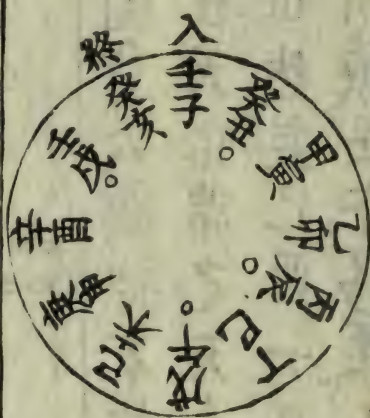 入
壬子
癸丑○
甲寅
乙卯
丙辰○
丁巳
戊午○
己未
庚申
辛酉
壬戌○
癸亥